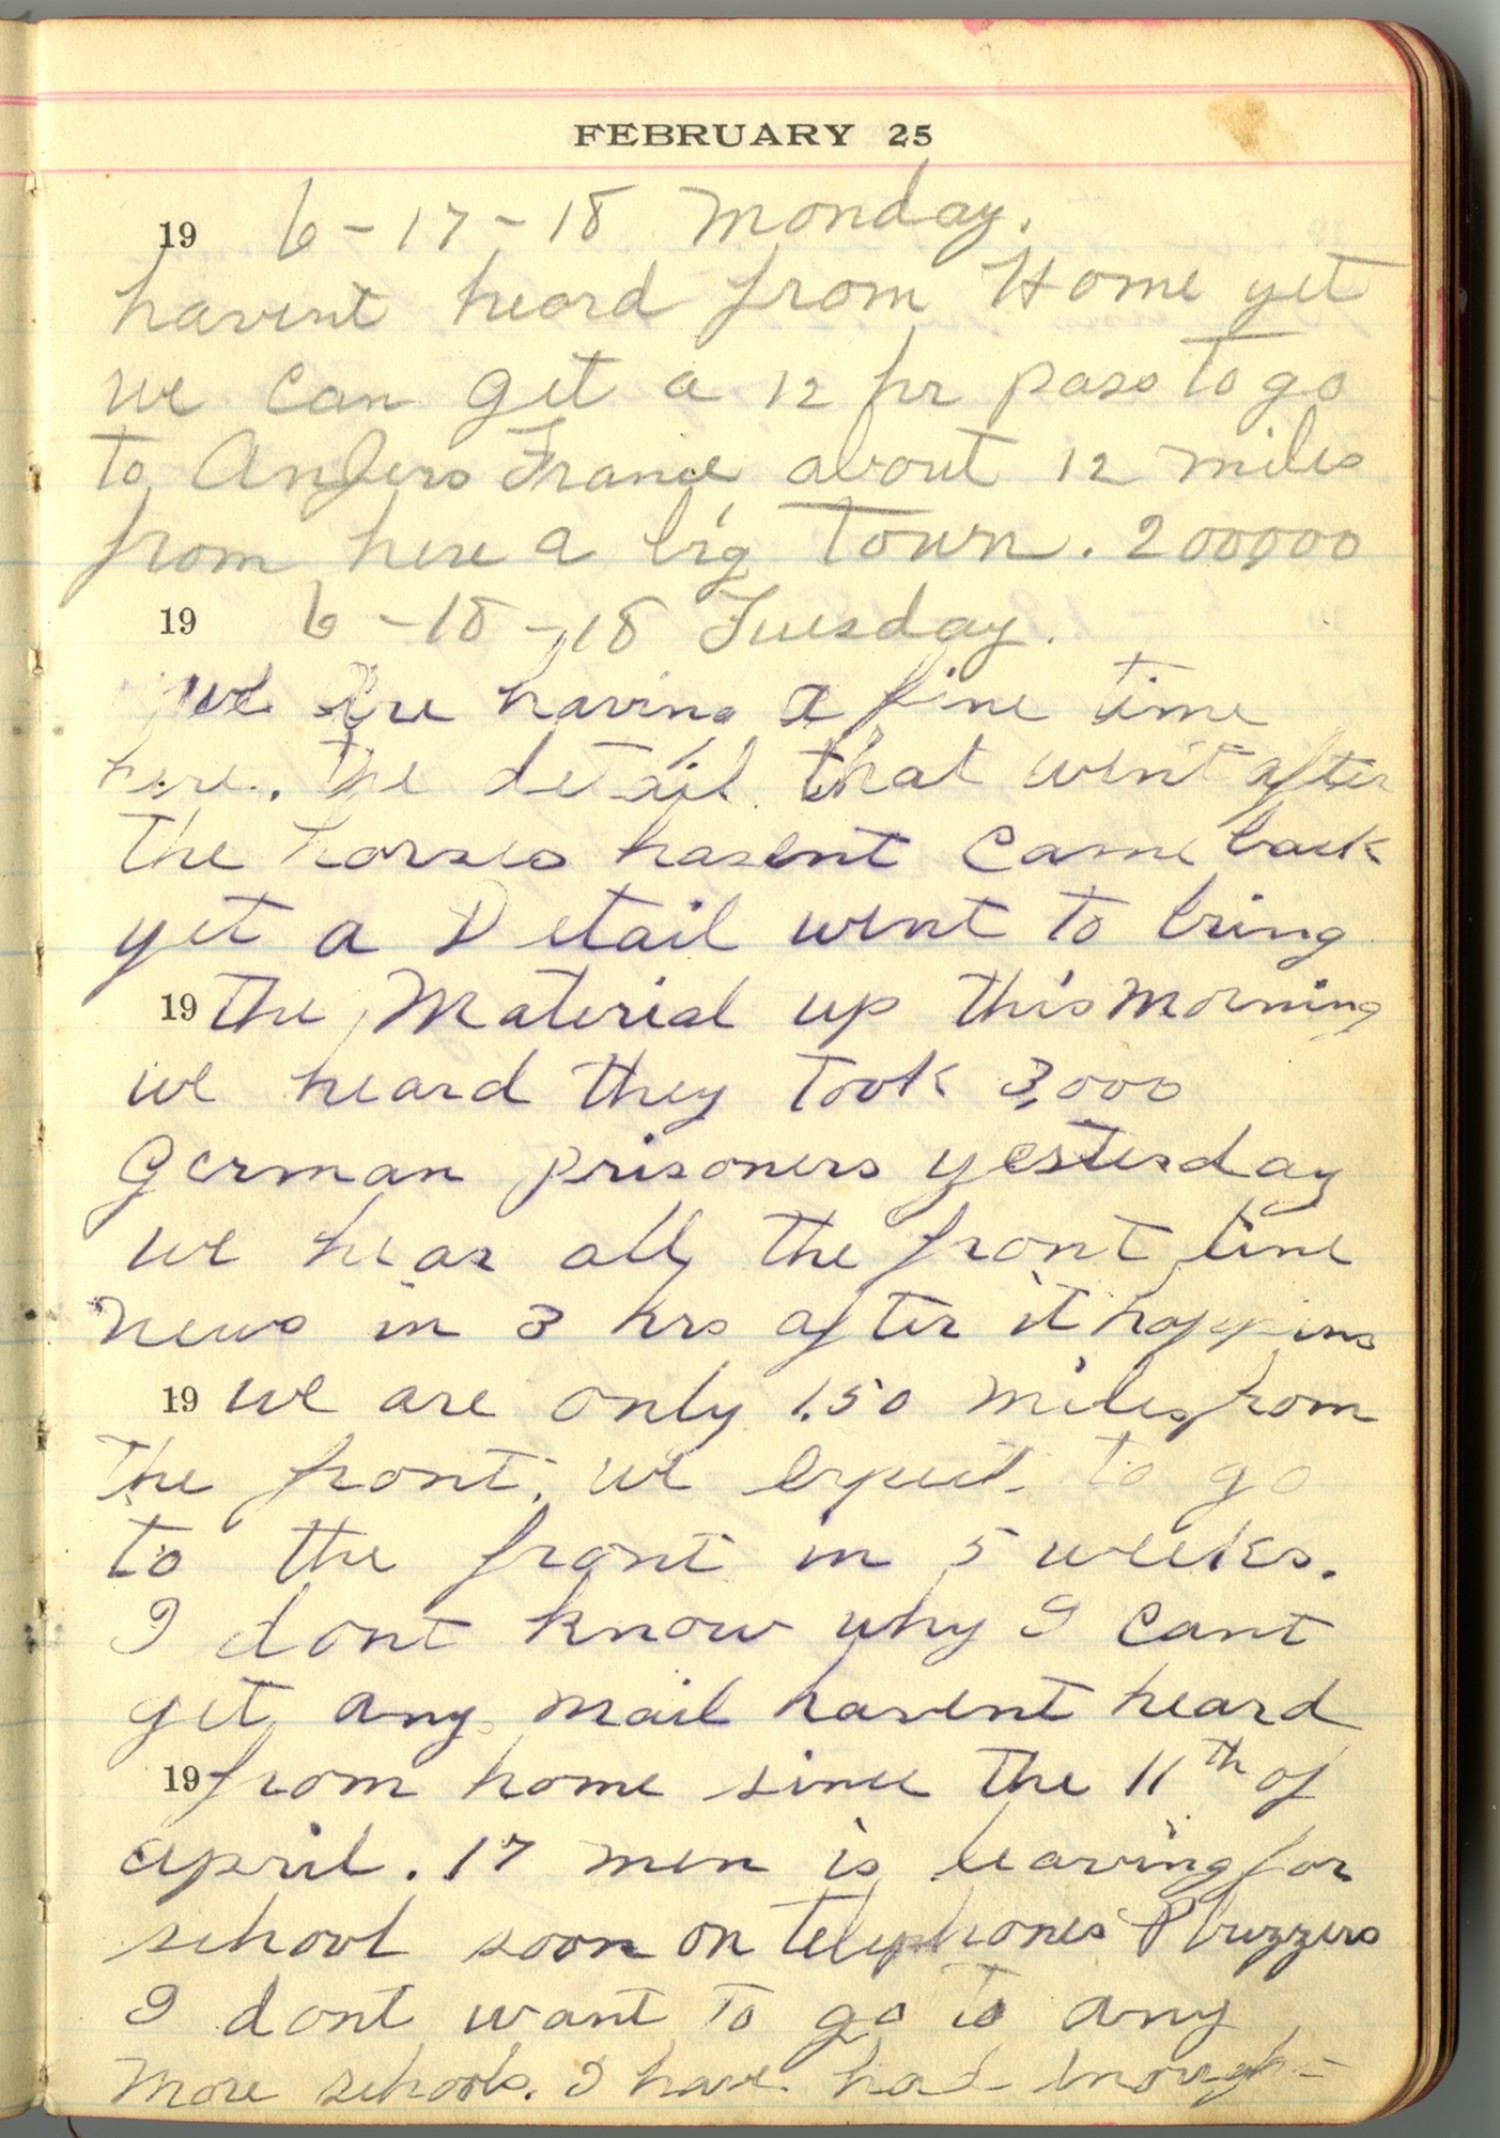 FEBRUARY 25
19 6-17-18 Monday.
havent heard from Home yet
we can get a 12 hr pass to go
to Anjers France about 12 miles
from here a big Town. 200000
19 6-18-18 Tuesday.
we are having a fine time
here. the detail that went after
the horses hasent came back
yet a Detail went to bring
19 the Material up this morning
we heard they took 3,000
German prisoners yesterday
we hear all the front line
news in 3 hrs after it happens
19 we are only 150 miles from
the front. we expect to go
to the front in 5 weeks.
I dont know why I cant
get any mail havent heard
19 from home since the 11th of
april. 17 men is leaving for
school soon on telephones & buzzers
I dont want to go to any
more schools. I have had enough-